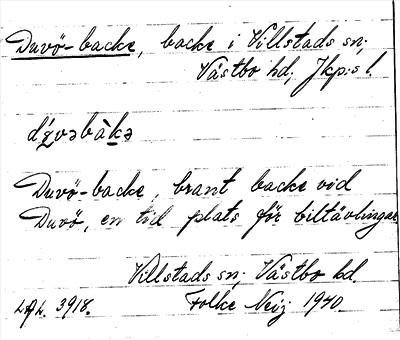 Duvö-backe, backe i Villstads sn;
Västbo hd; Jkp:s l.
dývəbàkə
Duvö-backe, brant backe vid
Duvö, en tid plats för biltävlingar.
Villstads sn; Västbo hd.
3918. Folke Neij 1940.